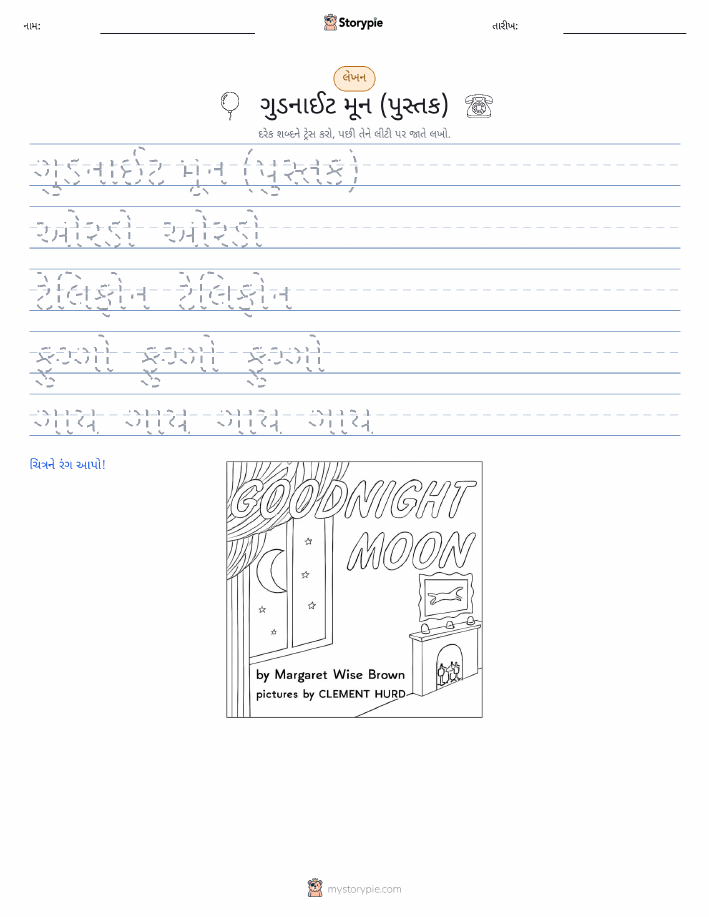 નામ:
Storypie
તારીખ:
લેખન
ગુડનાઈટ મૂન (પુસ્તક)
દરેક શબ્દને ટ્રેસ કરો, પછી તેને લીટી પર જાતે લખો.
ગુડનાઈટ મૂન (પુસ્તક)
ઓરડો ઓરડો
ટેલિફોન ટેલિફોન
ફુગ્ગો ફુગ્ગો ફુગ્ગો
ગાય ગાય ગાય ગાય
ચિત્રને રંગ આપો!
GOODNIGHT
MOON
by Margaret Wise Brown
pictures by CLEMENT HURD
mystorypie.com